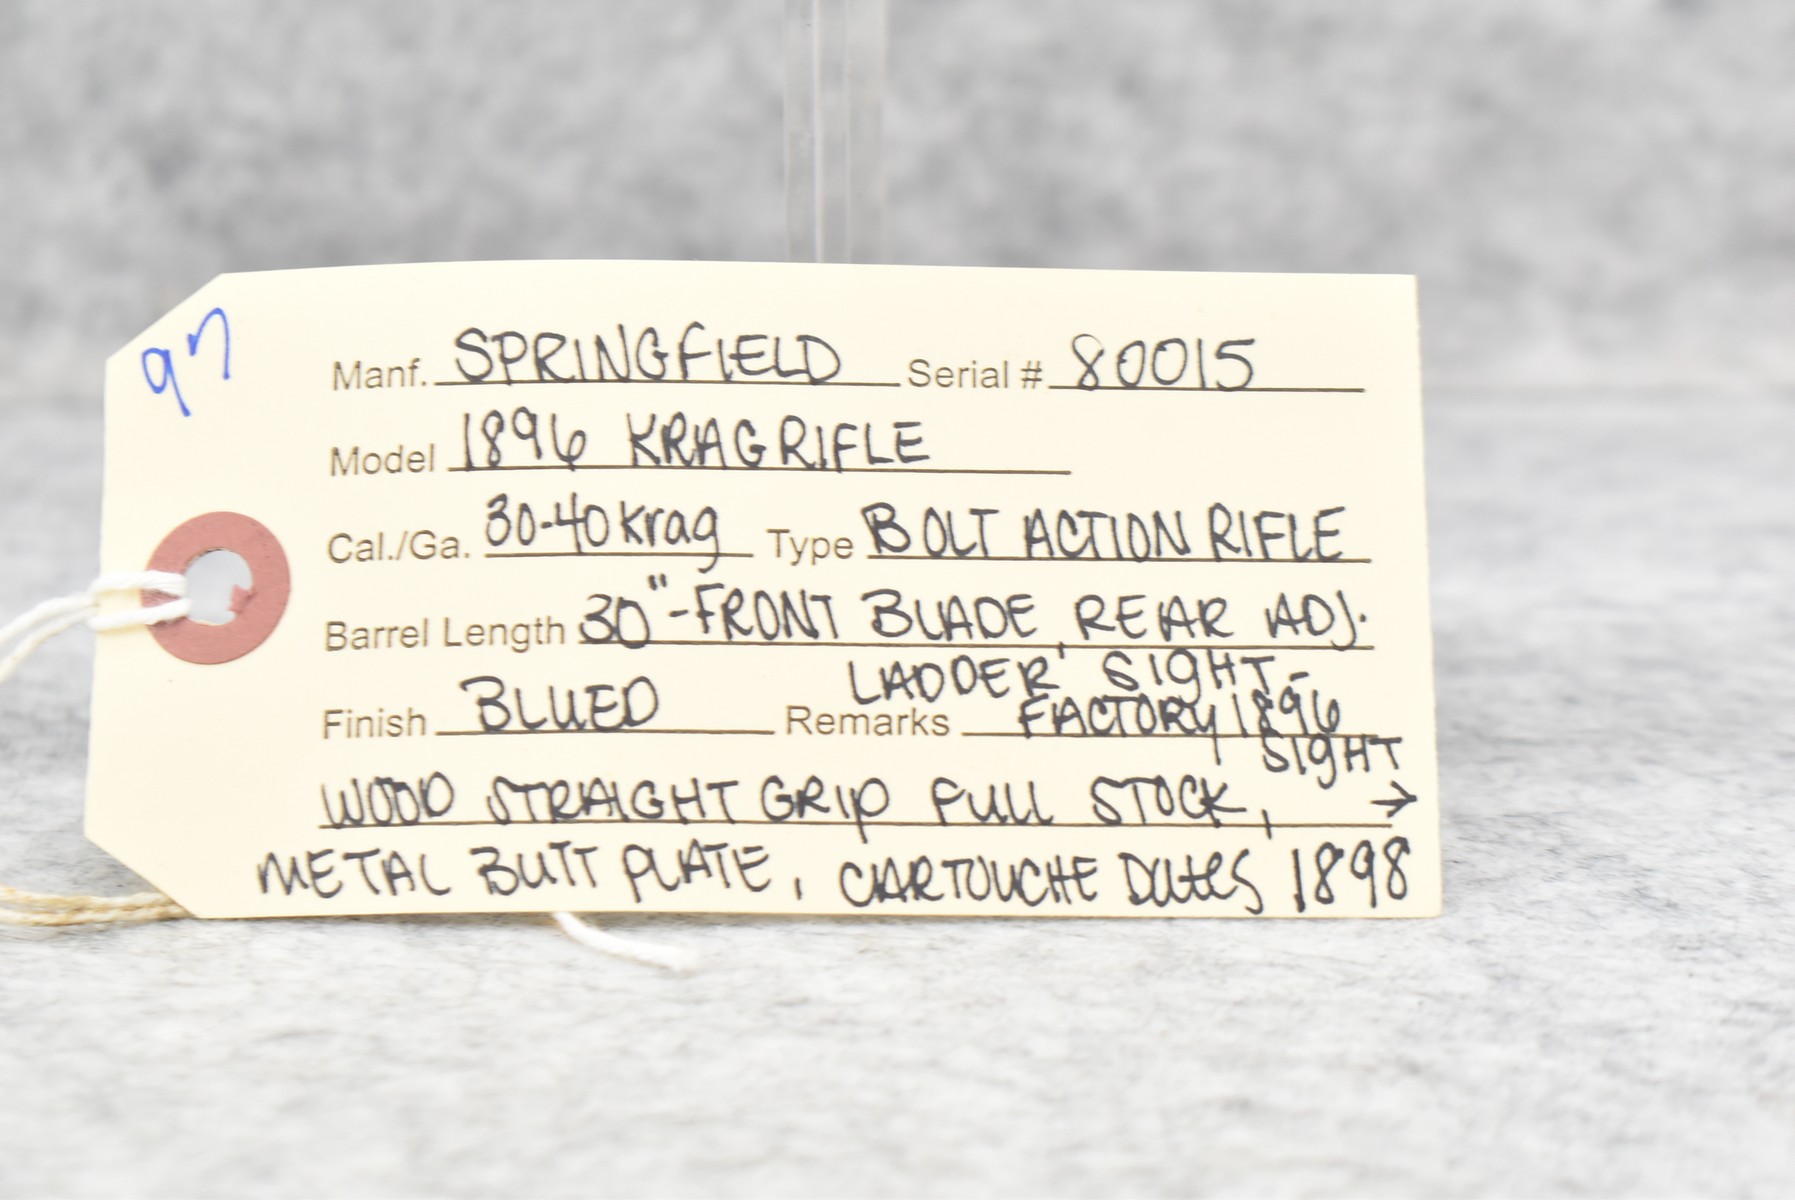 97
Manf. SPRINGFIELD Serial # 80015
Model 1896 KRAG RIFLE
Cal./Ga. 30-40 Krag Type BOLT ACTION RIFLE
Barrel Length 30"-FRONT BLADE, REAR ADJ.
LADDER SIGHT-
Finish BLUED Remarks FACTORY 1896
SIGHT
WOOD STRAIGHT GRIP FULL STOCK, →
METAL BUTT PLATE, CARTOUCHE Dates 1898